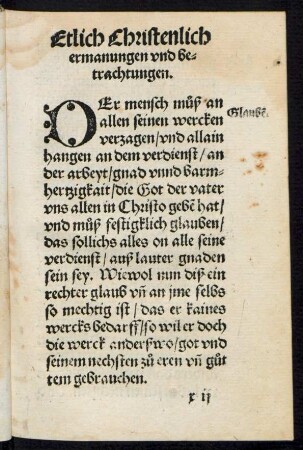 Etlich Christenlich
ermanungen vnd be-
trachtungen.
DEr mensch muͤß an
allen seinen wercken
verzagen/vnd allain
hangen an dem verdienst/an
der arbeyt/gnad vnnd barm-
hertzigkait/die Got der vater
vns allen in Christo gebẽ hat/
vnd muͤß festigklich glauben/
das sollichs alles on alle seine
verdienst/auß lauter gnaden
sein sey. Wiewol nun diß ein
rechter glaub vñ an jme selbs
so mechtig ist/das er kaines
wercks bedarff/so wil er doch
die werck anderßwo/got vnd
seinem nechsten zuͦ eren vñ guͤt
tem gebrauchen.
Glaubẽ.
x ij